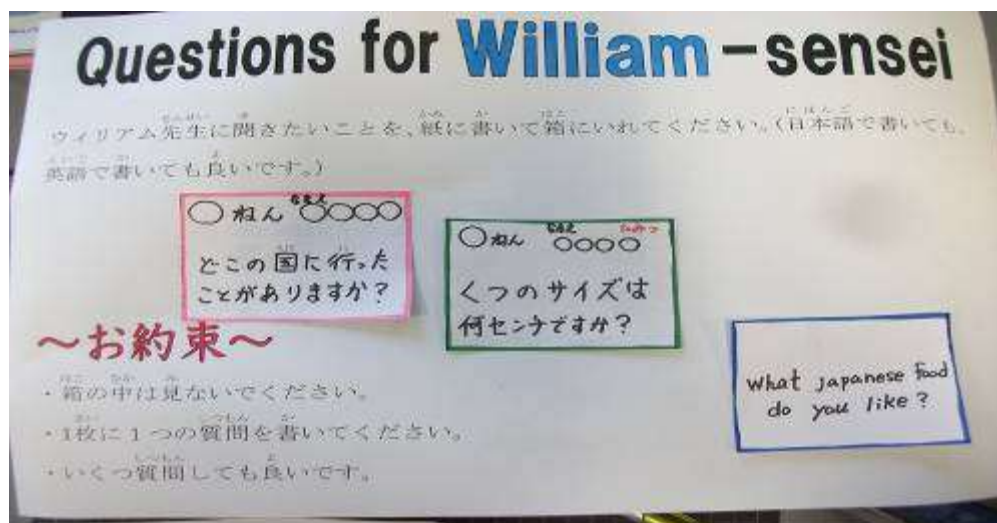 Questions for William-sensei
ウィリアム先生に聞きたいことを、紙に書いて箱にいれてください。(日本語で書いても、
英語で書いても良いです。)
○ねん なまえ ○○○○
どこの国に行った
ことがありますか?
○ねん なまえ ○○○○ ひみつ
くつのサイズは
何センチですか?
What Japanese food
do you like?
~お約束~
・箱の中は見ないでください。
・1枚に1つの質問を書いてください。
・いくつ質問しても良いです。